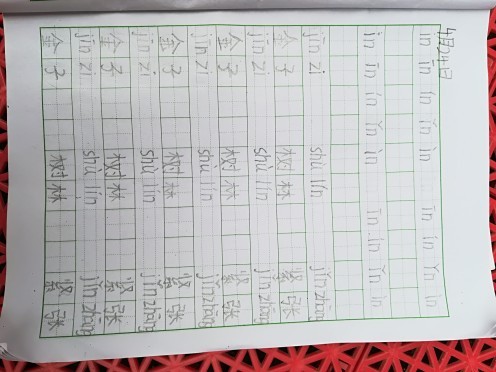 4月24日
in īn ín ǐn ìn īn ín ǐn ìn
in īn ín ǐn ìn īn ín ǐn ìn
jīn zi shù lín jǐn zhāng
金子 树林 紧张
jīn zi shù lín jǐn zhāng
金子 树林 紧张
jīn zi shù lín jǐn zhāng
金子 树林 紧张
jīn zi shù lín jǐn zhāng
金子 树林 紧张
jīn zi shù lín jǐn zhāng
金子 树林 紧张